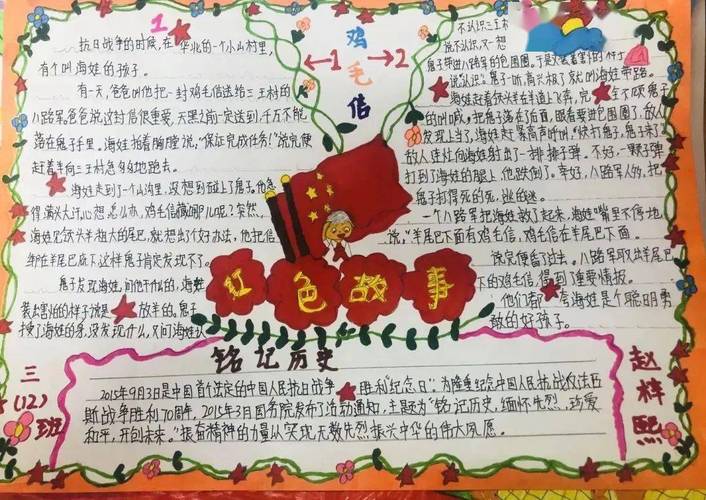 1
抗日战争的时候,在华北的一个小山村里,
有个叫海娃的孩子。
有一天,爸爸叫他把一封鸡毛信送给三王村的
八路军,爸爸说这封信很重要,天黑之前一定送到,千万不能
落在鬼子手里,海娃拍着胸膛说,"保证完成任务!"说完便
赶着羊向三王村急匆匆地跑去。
海娃走到了一个山沟里,没想到碰上了鬼子。他急
得满头大汗,心想怎么办,鸡毛信藏哪儿呢?突然,
海娃见
羊超大的尾巴,就想出了个好办法,他把信
绑在羊尾巴底下,这样鬼子肯定发现不了。
鬼子发现海娃,问他干什么的,海娃
装出害怕的样子说是放羊的。鬼子
搜了海娃的身,没发现什么,又问海娃认
←1 鸡毛信 →2
不认识三王村
说不认识,又想
说认识!鬼子一听,高兴极了,就叫海娃带路。
海娃赶着
羊在羊道上飞奔,完全不顾鬼子
的叫喊,把鬼子落在了后面,眼看要进包围圈了,敌人
发现上当了,海娃赶紧高声呼叫"快打鬼子,鬼子来了"
敌人连忙向海娃射出了一排排子弹。不好,一颗子弹
打到了海娃的腿上,他跌倒了。幸好,八路军人的,把
鬼子打得死的死,逃的逃。
一个八路军把海娃救了起来,海娃嘴里不停地
说,"羊尾巴下面有鸡毛信,鸡毛信在羊尾巴下面。"
说完便昏了过去。八路军取出羊尾巴
下的鸡毛信,得到了重要情报。
他们都夸海娃是个聪明勇
敢的好孩子。
红色故事
铭记历史
2015年9月3日是中国首个法定的中国人民抗日战争胜利"纪念日"。为隆重纪念中国人民抗战及法西
斯战争胜利70周年,2015年3月国务院发布了活动通知,主题为"铭记历史,缅怀先烈,珍爱
和平,开创未来。"振奋精神的力量从实现无数先烈振兴中华的伟大夙愿。
三(12)班
赵梓熙